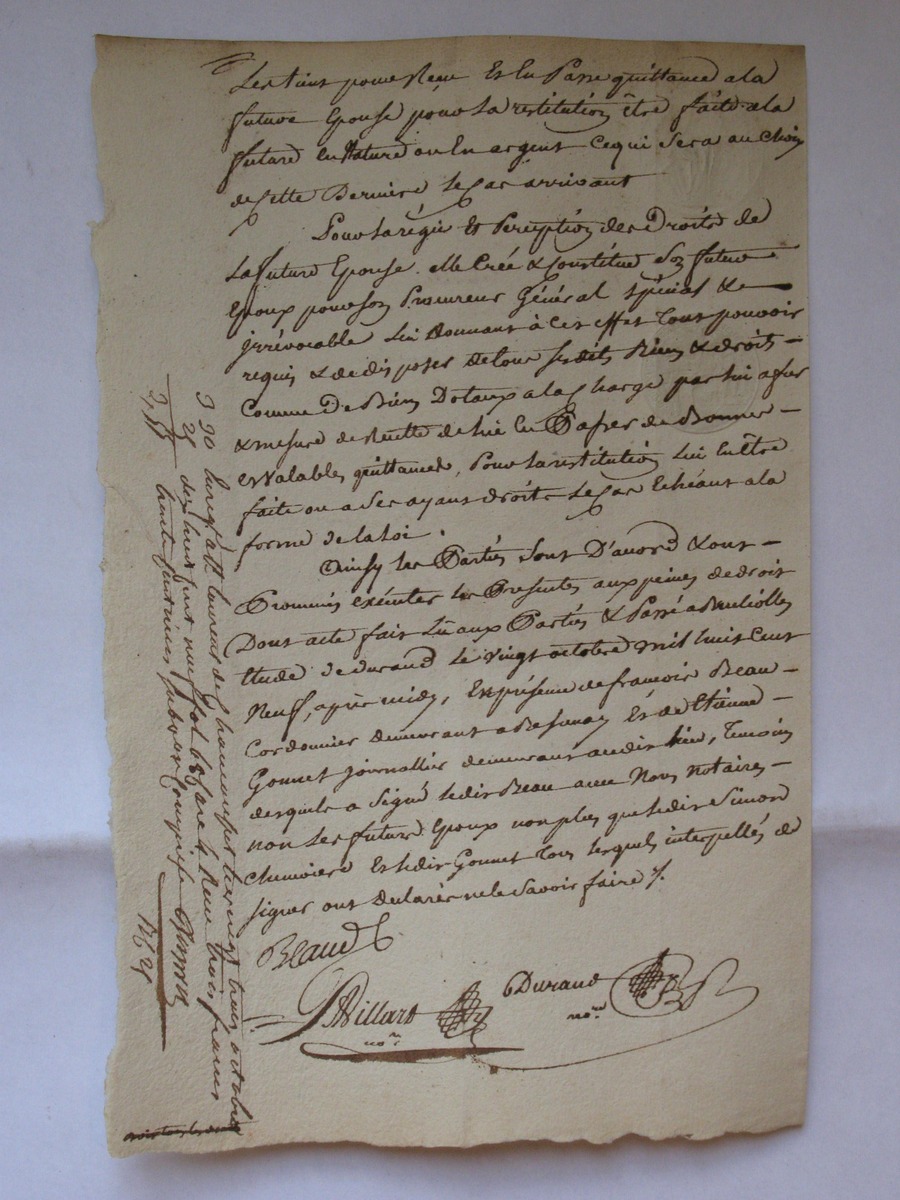 Les tiens pour Reçu Et En Passe quittance a la
future Epouse pour La restitution être faite a la
future En Nature ou En argent ce qui Sera au Choix
de Cette Derniere le Cas arrivant
Pour la régie Et Perception des Droits de
La future Epouse. elle Crée & Constitue Son futur
Epoux pour Son Procureur Général spécial &
irrévocable Lui Donnant à Cet effet Tout pouvoir
requis & de disposer de tous Sesdits Biens & droits
Comme De Biens Dotaux a la Charge par lui a fur
& mesure de Recette de lui En Passer de Bonnes
et Valables quittances, Pour la restitution Lui En être
faite ou a Ses ayant droits le Cas Echéant a la
forme de la Loi.
Ainsy les Parties Sont D'acord & ont
Prommis exécuter les Presentes aux peines de droit
Dont acte fait Lu aux Parties & Passé a
Etude de Durand le vingt octobre mil huit Cent
Neuf, après midy, En présence de francois Beau
Cordonnier demeurant a Et de Etienne
Gonnet journallier demeurant audit lieu, Temoins
desquels a Signé ledit Beau avec Nous Notaires
non Les futurs Epoux non plus que ledit Simond
Et ledit Gonnet Tous lesquels interpellés de
signer ont Déclarés ne le Savoir faire
Beaud
PVillard Durand
no.re no.re
3 30 Enregt. att octobre
25 dix huit cent neuf fol 68 Case Reçu trois francs
trente Centimes Subvon Comprise